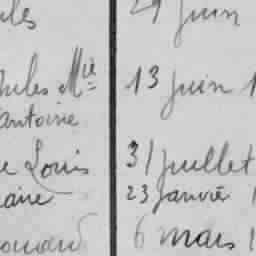 les 29 juin
Jules Mie 13 juin 1
antoine
e Louis 31 juillet
aire 23 janvier 1
6 mars 1